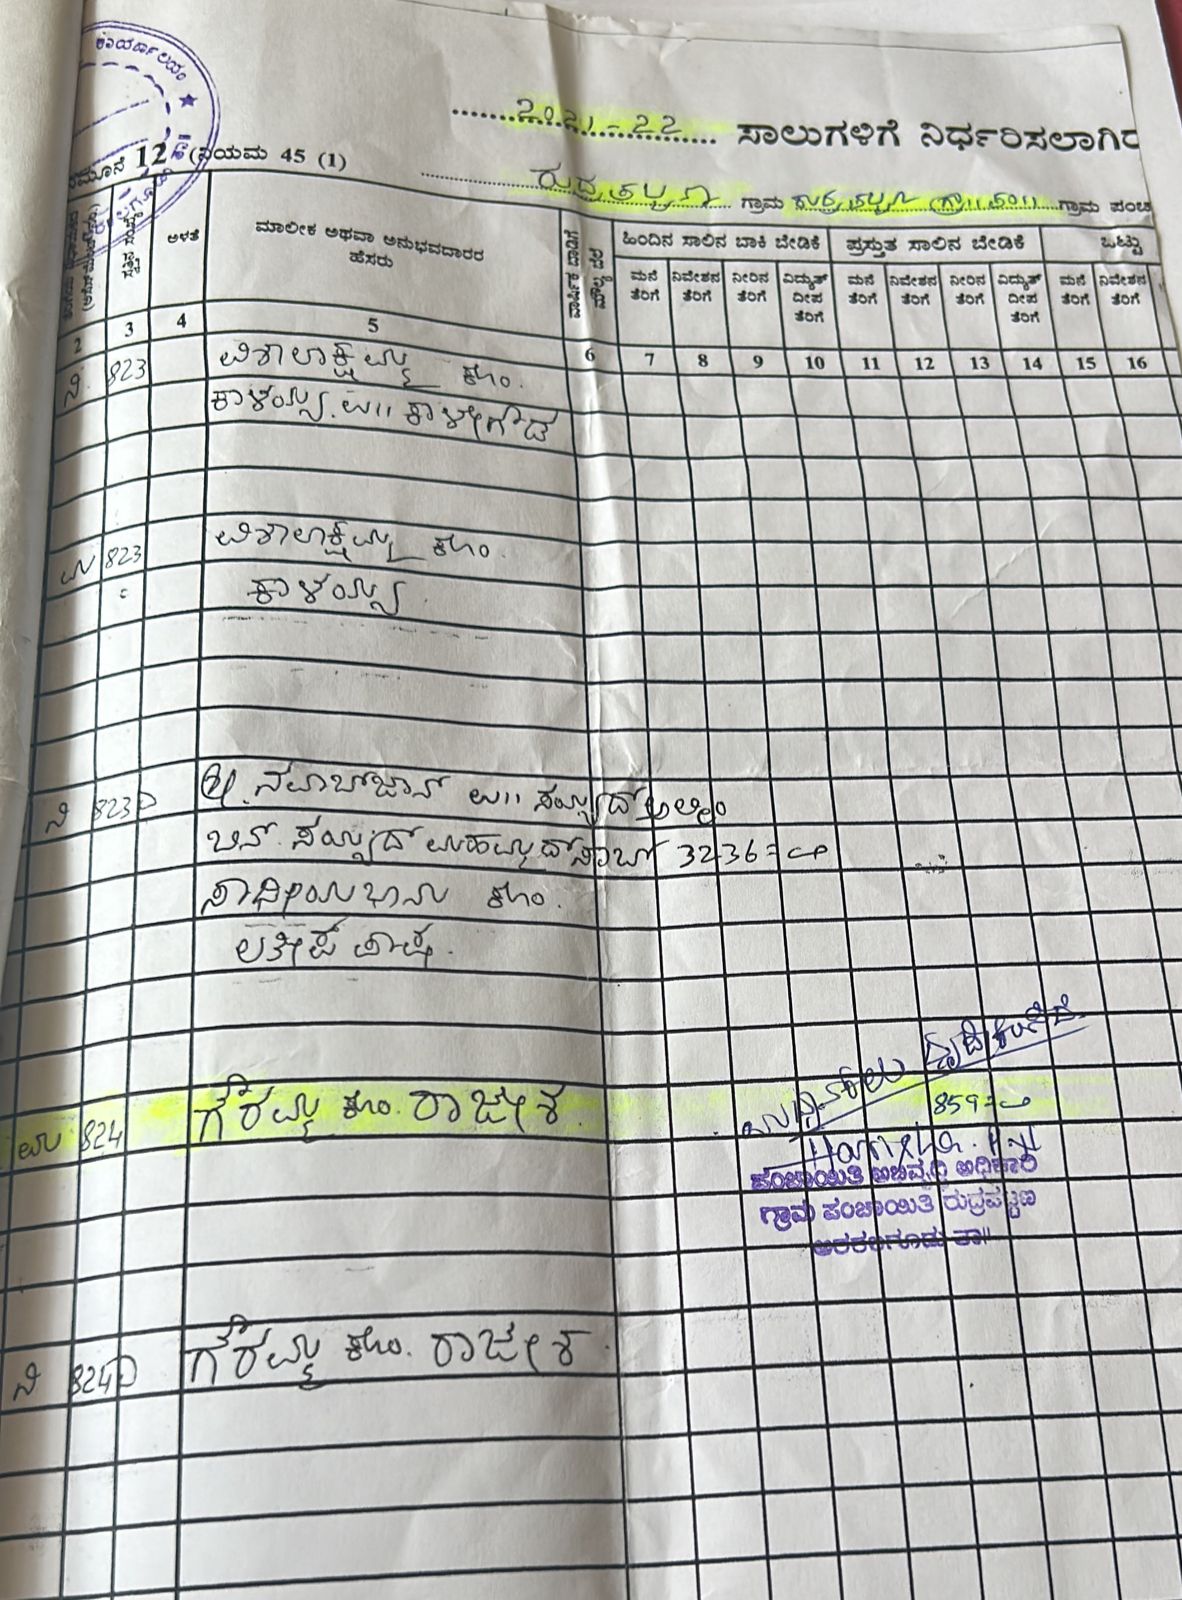 ಕಾರ್ಯಾಲಯ
2021-22 ಸಾಲುಗಳಿಗೆ ನಿರ್ಧರಿಸಲಾಗಿರ
ನಮೂನೆ 12 (ನಿಯಮ 45 (1)
ರುದ್ರಪಟ್ಟಣ ಗ್ರಾಮ ರುದ್ರಪಟ್ಟಣ (ಗ್ರಾ।।ಪಂ।।) ಗ್ರಾಮ ಪಂಚ
ಅಳತೆ
ಮಾಲೀಕ ಅಥವಾ ಅನುಭವದಾರರ ಹೆಸರು
ಹಿಂದಿನ ಸಾಲಿನ ಬಾಕಿ ಬೇಡಿಕೆ ಪ್ರಸ್ತುತ ಸಾಲಿನ ಬೇಡಿಕೆ ಒಟ್ಟು
ಮನೆ ತೆರಿಗೆ ನಿವೇಶನ ತೆರಿಗೆ ನೀರಿನ ತೆರಿಗೆ ವಿದ್ಯುತ್ ದೀಪ ತೆರಿಗೆ ಮನೆ ತೆರಿಗೆ ನಿವೇಶನ ತೆರಿಗೆ ನೀರಿನ ತೆರಿಗೆ ವಿದ್ಯುತ್ ದೀಪ ತೆರಿಗೆ ಮನೆ ತೆರಿಗೆ ನಿವೇಶನ ತೆರಿಗೆ
2 3 4 5 6 7 8 9 10 11 12 13 14 15 16
ನಿ. 823 ವಿಶಾಲಾಕ್ಷಮ್ಮ ಕೋಂ.
ಕಾಳಯ್ಯ ಬಿ।। ಕಾಳೇಗೌಡ
ಮ 823 ವಿಶಾಲಾಕ್ಷಮ್ಮ ಕೋಂ.
ಕಾಳಯ್ಯ
ನಿ 823 ಶ್ರೀ. ನವಾಬ್‌ಜಾನ್
ಬಿನ್. ಸಯ್ಯದ್ ಮಹಮ್ಮದ್ ಸಾಬ್ 3236=
ಕೋಂ.
ಲತೀಫ್ ಪಾಷ.
ಮ 824 ಗೌರಮ್ಮ ಕೋಂ. ರಾಜೇಶ. 859=
ಪಂಚಾಯಿತಿ ಅಭಿವೃದ್ಧಿ ಅಧಿಕಾರಿ
ಗ್ರಾಮ ಪಂಚಾಯಿತಿ ರುದ್ರಪಟ್ಟಣ
ಅರಕಲಗೂಡು ತಾ॥
ನಿ 824 ಗೌರಮ್ಮ ಕೋಂ. ರಾಜೇಶ.